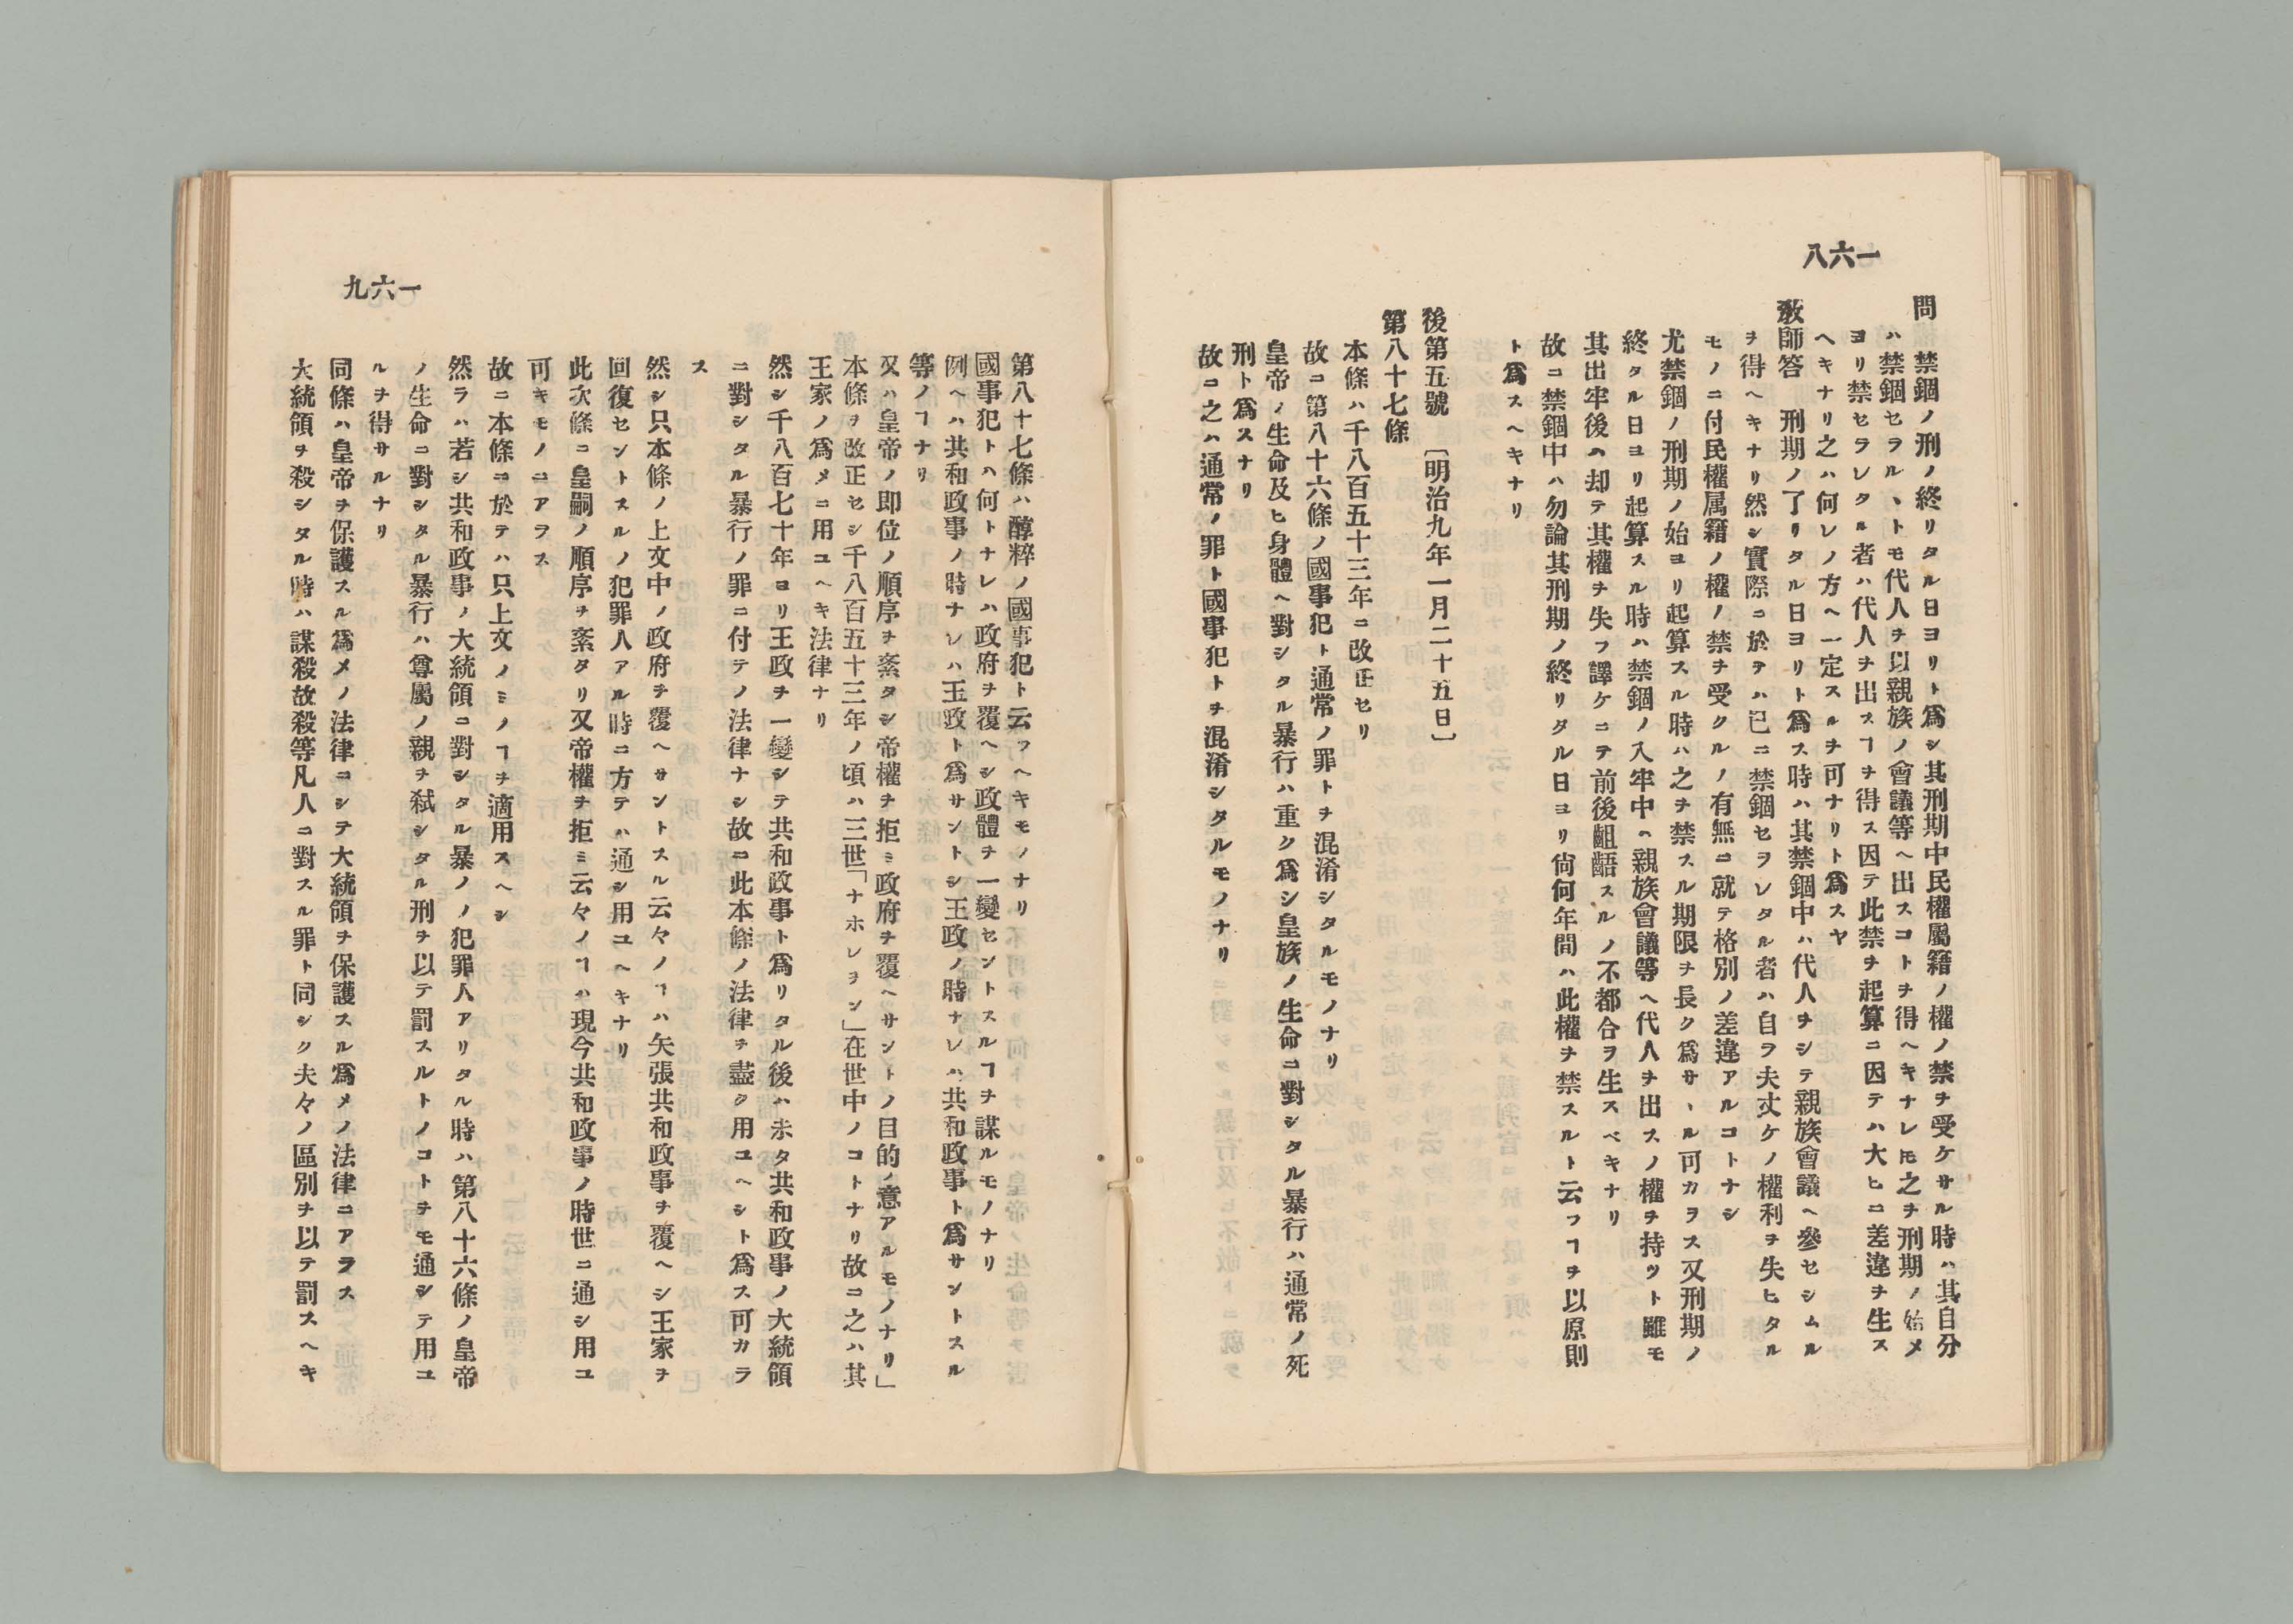 一六八
問 禁錮ノ刑ノ終リタル日ヨリト爲シ其刑期中民權屬籍ノ權ノ禁ヲ受ケサル時ハ其自分
ハ禁錮セラル、トモ代人ヲ以親族ノ會議等ヘ出スコトヲ得ヘキナレ𪜈之ヲ刑期ノ始メ
ヨリ禁セラレタル者ハ代人ヲ出スヿヲ得ス因テ此禁ヲ起算ニ因テハ大ヒニ差違ヲ生ス
ヘキナリ之ハ何レノ方ヘ一定スルヲ可ナリト爲スヤ
敎師答 刑期ノ了リタル日ヨリト爲ス時ハ其禁錮中ハ代人ヲシテ親族會議ヘ參セシムル
ヲ得ヘキナリ然シ實際ニ於テハ已ニ禁錮セラレタル者ハ自ラ夫丈ケノ權利ヲ失ヒタル
モノニ付民權属籍ノ權ノ禁ヲ受クルノ有無ニ就テ格別ノ差違アルコトナシ
尤禁錮ノ刑期ノ始ヨリ起算スル時ハ之ヲ禁スル期限ヲ長ク爲サ、ル可カラス又刑期ノ
終タル日ヨリ起算スル時ハ禁錮ノ入牢中ハ親族會議等ヘ代人ヲ出スノ權ヲ持ツト雖モ
其出牢後ハ却テ其權ヲ失フ譯ケニテ前後齟齬スルノ不都合ヲ生スベキナリ
故ニ禁錮中ハ勿論其刑期ノ終リタル日ヨリ尙何年間ハ此權ヲ禁スルト云フヿヲ以原則
ト爲スヘキナリ
後第五號 〔明治九年一月二十五日〕
第八十七條
本條ハ千八百五十三年ニ改正セリ
故ニ第八十六條ノ國事犯ト通常ノ罪トヲ混淆シタルモノナリ
皇帝ノ生命及ヒ身體ヘ對シタル暴行ハ重ク爲シ皇族ノ生命ニ對シタル暴行ハ通常ノ死
刑ト爲スナリ
故ニ之ハ通常ノ罪ト國事犯トヲ混淆シタルモノナリ
一六九
第八十七條ハ醇粹ノ國事犯ト云フヘキモノナリ
國事犯トハ何トナレハ政府ヲ覆ヘシ政體ヲ一變セントスルヿヲ謀ルモノナリ
例ヘハ共和政事ノ時ナレハ王政ト爲サントシ王政ノ時ナレハ共和政事ト爲サントスル
等ノヿナリ
又ハ皇帝ノ即位ノ順序ヲ紊タシ帝權ヲ拒ミ政府ヲ覆ヘサントノ目的ノ意アルモノナリ」
本條ヲ改正セシ千八百五十三年ノ頃ハ三世「ナホレヲン」在世中ノコトナリ故ニ之ハ其
王家ノ爲メニ用ユヘキ法律ナリ
然シ千八百七十年ヨリ王政ヲ一變シテ共和政事ト爲リタル後ハ未タ共和政事ノ大統領
ニ對シタル暴行ノ罪ニ付テノ法律ナシ故ニ此本條ノ法律ヲ盡ク用ユヘシト爲ス可カラ
ス
然シ只本條ノ上文中ノ政府ヲ覆ヘサントスル云々ノヿハ矢張共和政事ヲ覆ヘシ王家ヲ
回復セントスルノ犯罪人アル時ニ方テハ通シ用ユヘキナリ
此次條ニ皇嗣ノ順序ヲ紊タリ又帝權ヲ拒ミ云々ノヿハ現今共和政事ノ時世ニ通シ用ユ
可キモノニアラス
故ニ本條ニ於テハ只上文ノミノヿヲ適用スヘシ
然ラハ若シ共和政事ノ大統領ニ對シタル暴ノノ犯罪人アリタル時ハ第八十六條ノ皇帝
ノ生命ニ對シタル暴行ハ尊屬ノ親ヲ弑シタル刑ヲ以テ罰スルトノコトヲモ通シテ用ユ
ルヲ得サルナリ
同條ハ皇帝ヲ保護スル爲メノ法律ニシテ大統領ヲ保護スル爲メノ法律ニアラス
大統領ヲ殺シタル時ハ謀殺故殺等凡人ニ對スル罪ト同シク夫々ノ區別ヲ以テ罰スヘキ